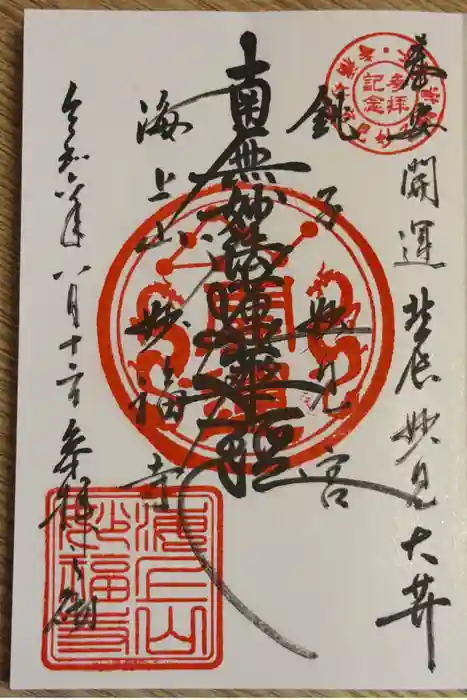 奉安 開運 北辰妙見大菩薩
銚子 妙見宮
南無妙法蓮華経
海上山 妙福寺
令和六年八月十六日 参拝之砌
参拝記念
海上山妙福寺